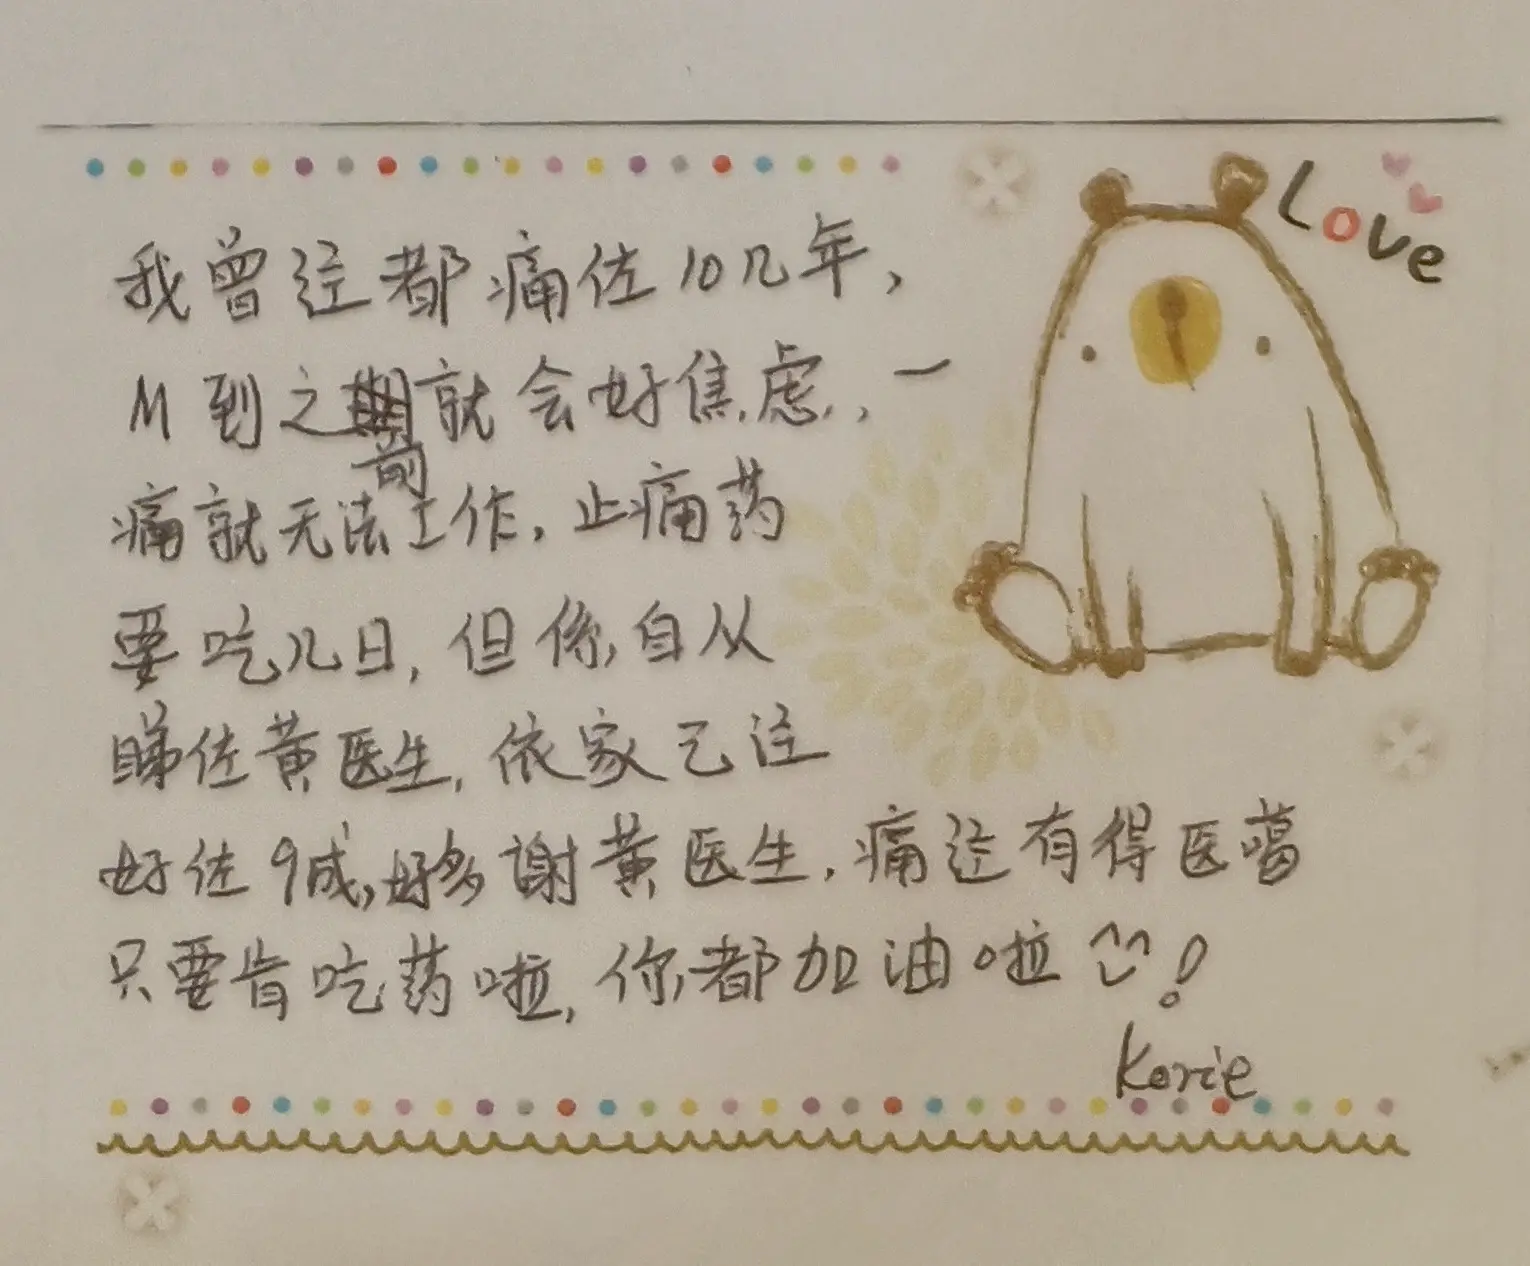 Love
我曾迳都痛佐10几年，
M到之前就会好焦虑，一
痛就无法工作，止痛药
要吃几日，但係自从
睇佐黄医生，依家己迳
好佐9成，好多謝黄医生，痛迳有得医噶
只要肯吃药啦，你都加油啦^^！
Kerie